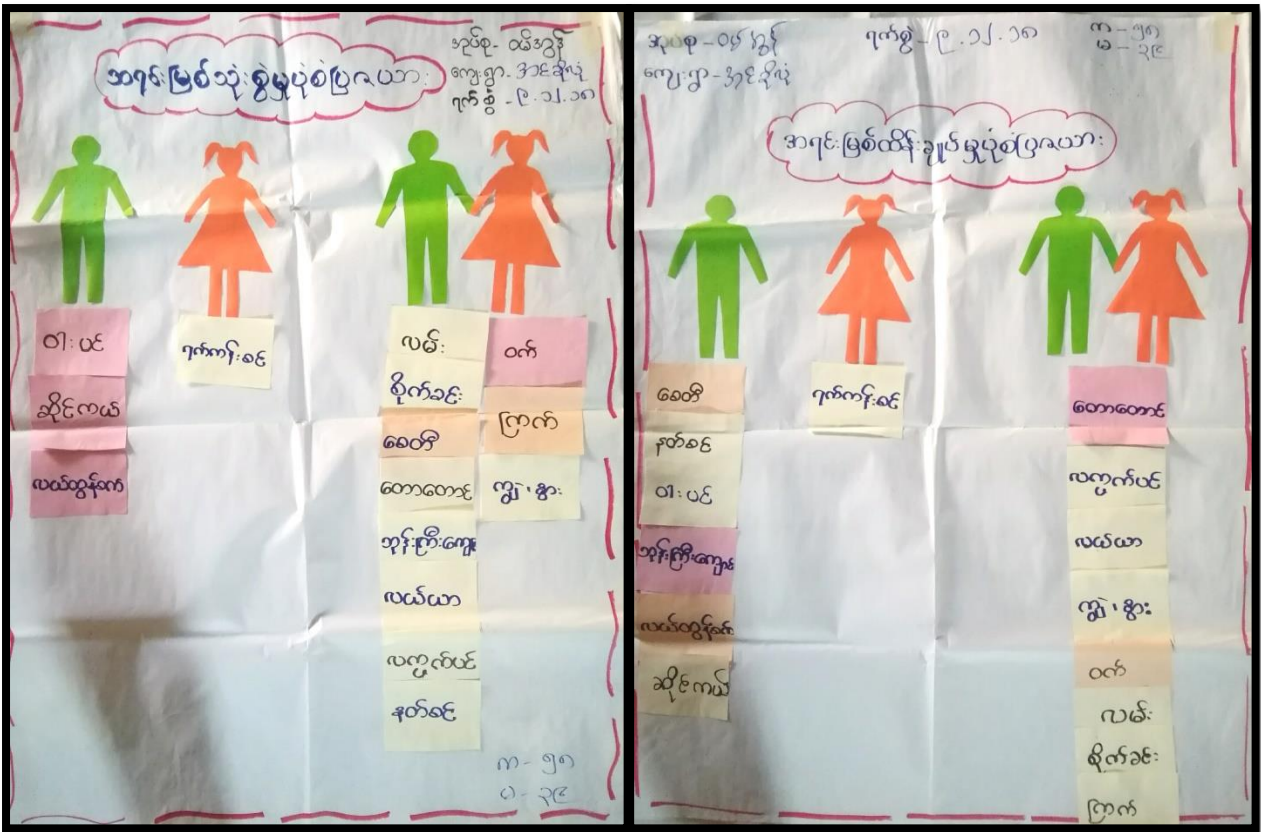 အရင်းမြစ်သုံးစွဲမှုပုံစံပြဇယား
အုပ်စု - ဝမ်အွန်
ကျေးရွာ -
ရက်စွဲ - ၉.၁၂.၁၈
ဝါးပင်
ဆိုင်ကယ်
လယ်ထွန်စက်
ရက်ကန်းစင်
လမ်း
စိုက်ခင်း
စေတီ
တောတောင်
ဘုန်းကြီးကျောင်း
လယ်ယာ
လက္ဖက်ပင်
နတ်စင်
ဝက်
ကြက်
ကျွဲ၊ နွား
က - ၅၈
မ - ၃၉
အုပ်စု - ဝမ်အွန်
ကျေးရွာ -
ရက်စွဲ - ၉.၁၂.၁၈
က - ၅၈
မ - ၃၉
အရင်းမြစ်ထိန်းချုပ်မှုပုံစံပြဇယား
စေတီ
နတ်စင်
ဝါးပင်
ဘုန်းကြီးကျောင်း
လယ်ထွန်စက်
ဆိုင်ကယ်
ရက်ကန်းစင်
တောတောင်
လက္ဖက်ပင်
လယ်ယာ
ကျွဲ၊ နွား
ဝက်
လမ်း
စိုက်ခင်း
ကြက်